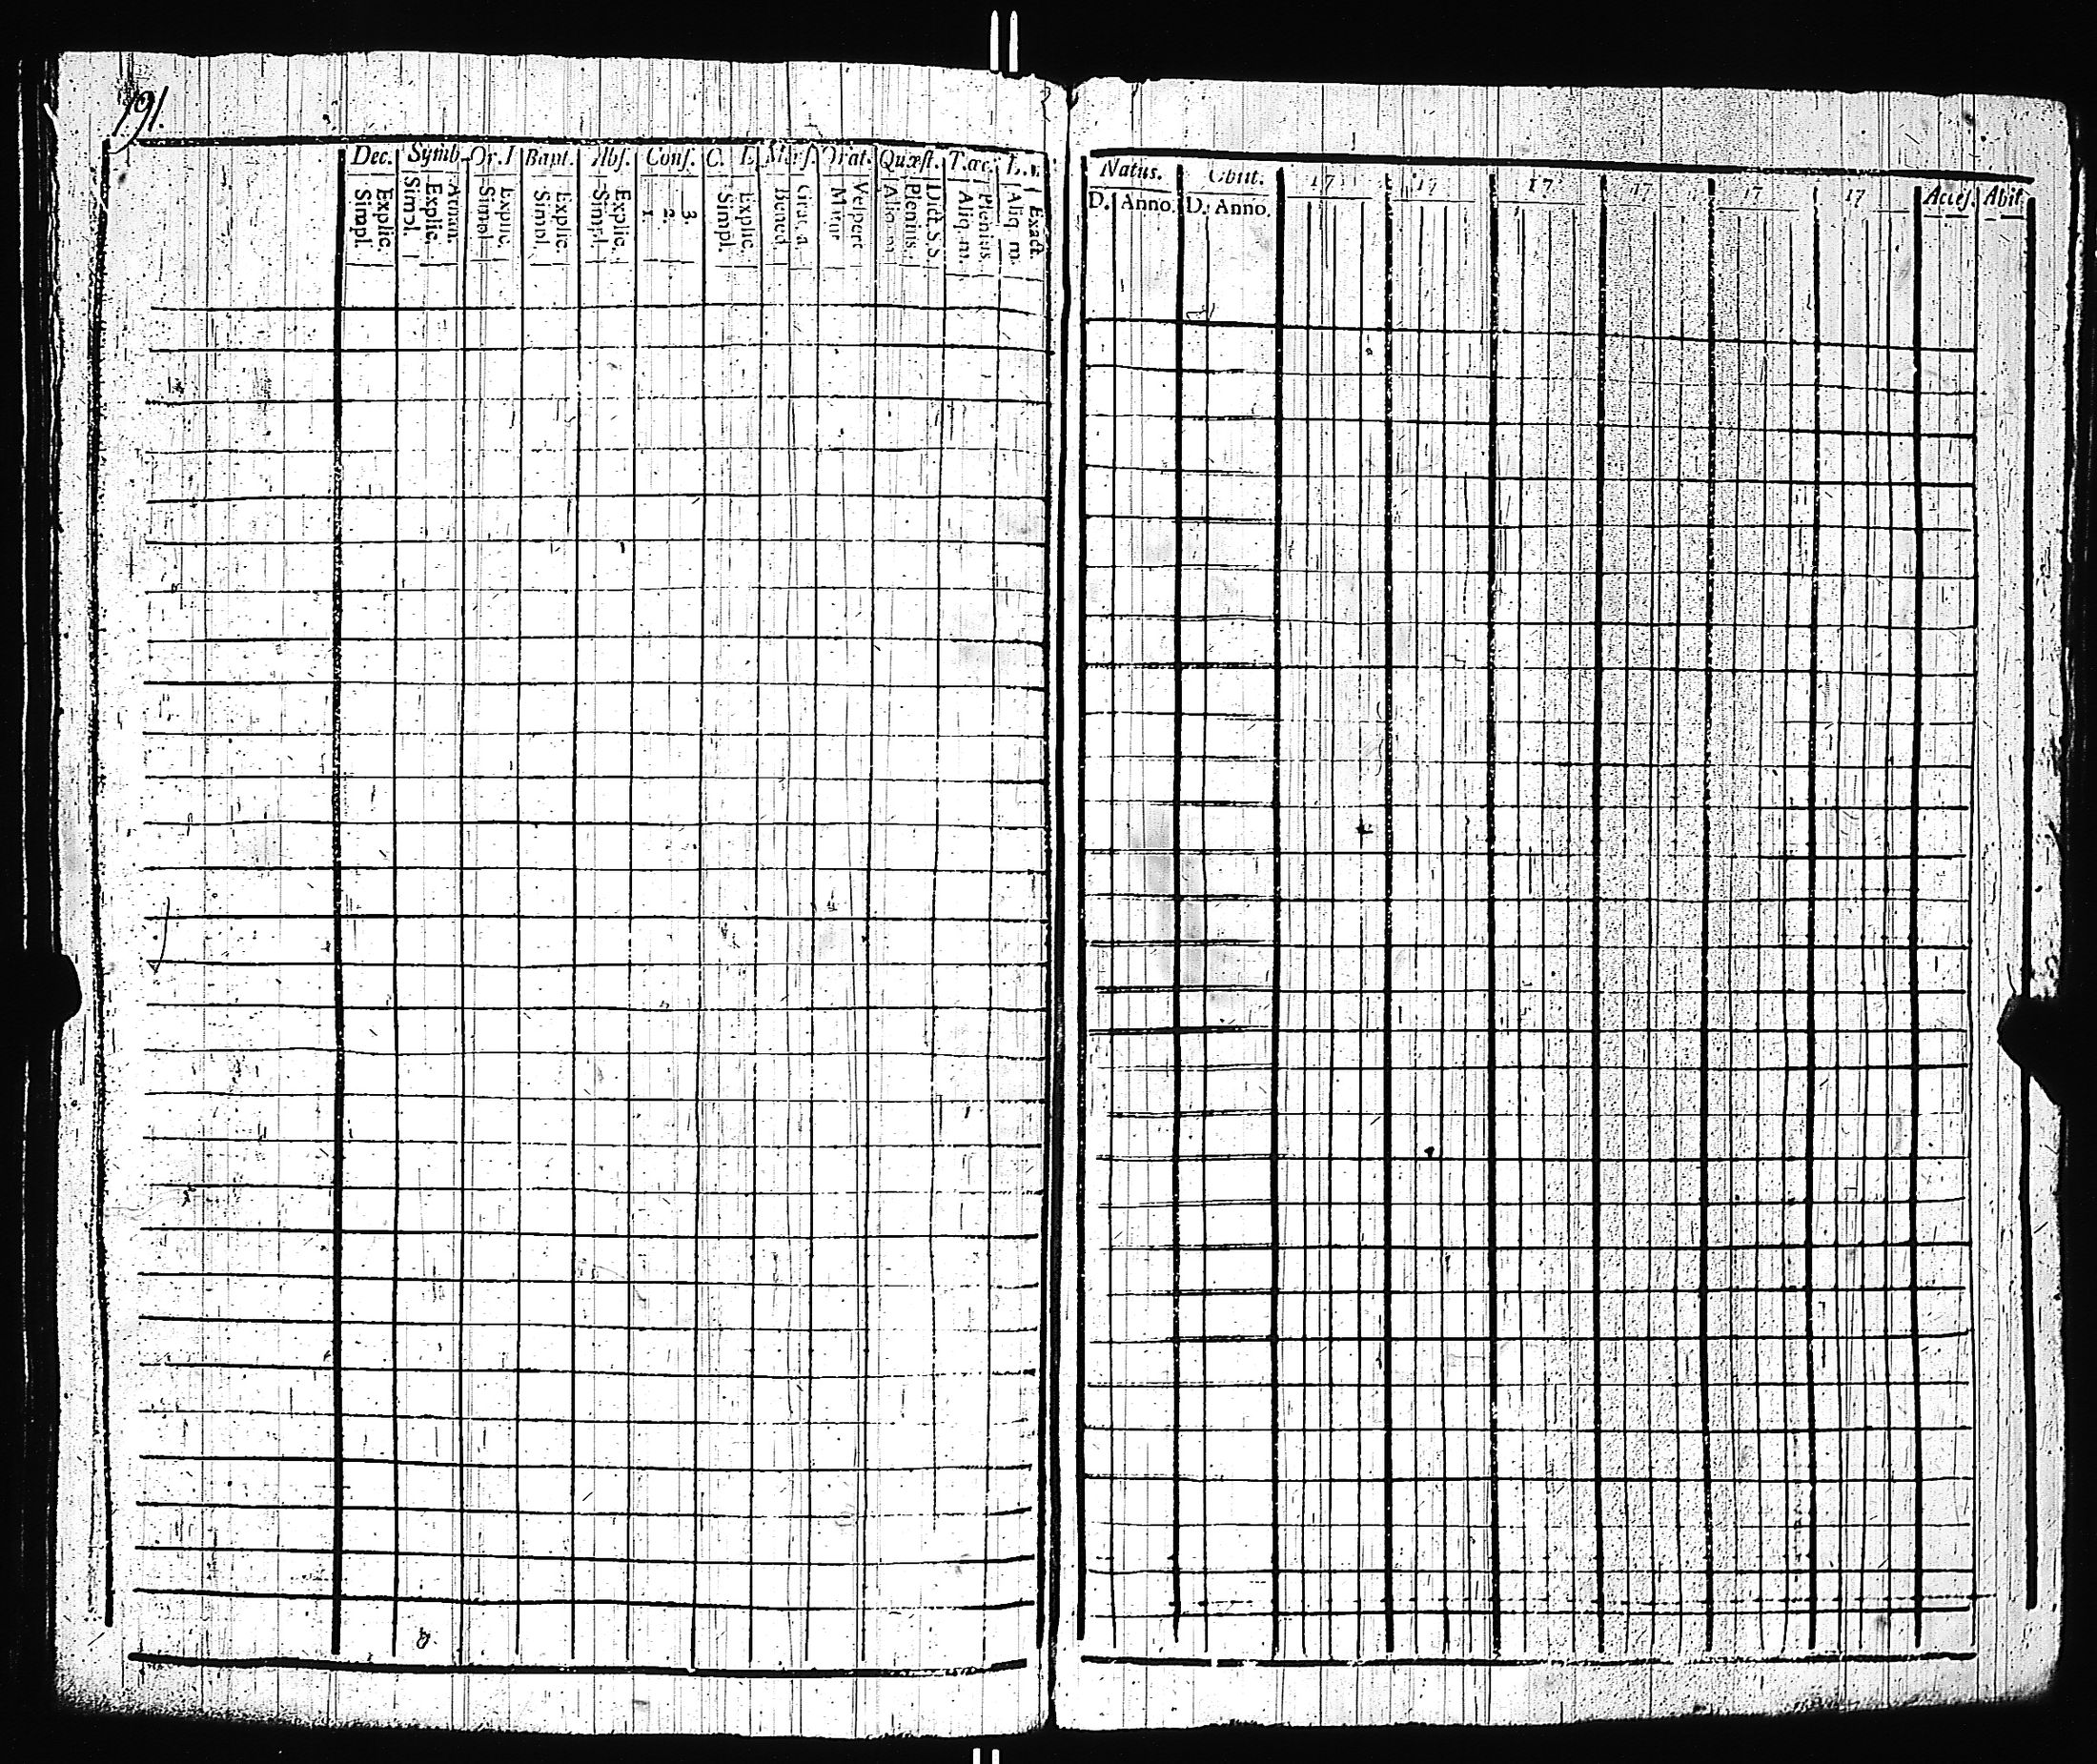 191.
Dec. Symb. Or. D Bapt. Abs. Conf. C. E. Mens. Orat. Quæst. T. œc.
Simpl. Explic. Simpl. Explic. Simpl. Explic. Simpl. Explic. Simpl. Explic. 1. 2. 3. Simpl. Explic. Bened. Matut. Vespert. Aliq. m. Plenius. Dict. S. S. Aliq. m. Plenius. Aliq. m. Exact.
Natus. Obiit. 17 17 17 17 17 17 Acces. Abit.
D. Anno. D. Anno.